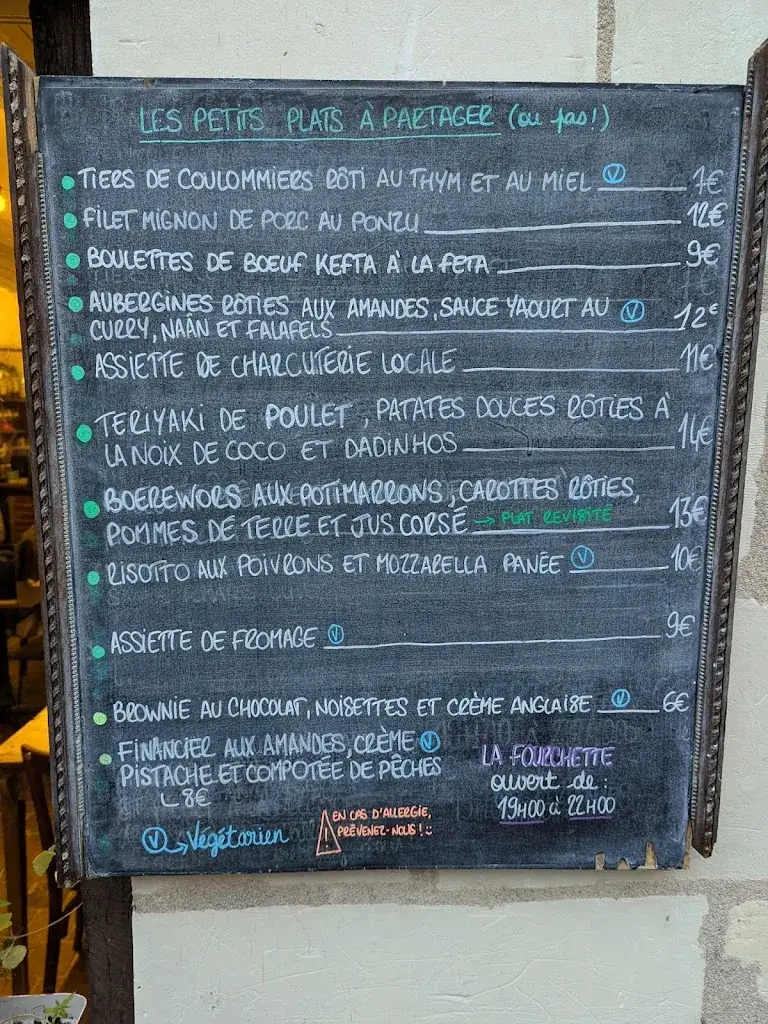 LES PETITS PLATS À PARTAGER (ou pas!)
TIERS DE COULOMMIERS RÔTI AU THYM ET AU MIEL V 7€
FILET MIGNON DE PORC AU PONZU 12€
BOULETTES DE BOEUF KEFTA À LA FETA 9€
AUBERGINES RÔTIES AUX AMANDES, SAUCE YAOURT AU V 12€
CURRY, NAÀN ET FALAFELS
ASSIETTE DE CHARCUTERIE LOCALE 11€
TERIYAKI DE POULET, PATATES DOUCES RÔTIES À
LA NOIX DE COCO ET DADINHOS 14€
BOEREWORS AUX POTIMARRONS, CAROTTES RÔTIES,
POMMES DE TERRE ET JUS CORSÉ → PLAT REVISITÉ 13€
RISOTTO AUX POIVRONS ET MOZZARELLA PANÉE V 10€
ASSIETTE DE FROMAGE V 9€
BROWNIE AU CHOCOLAT, NOISETTES ET CRÈME ANGLAISE V 6€
FINANCIER AUX AMANDES, CRÈME V
PISTACHE ET COMPOTÉE DE PÊCHES
8€
LA FOURCHETTE
ouvert de :
19H00 à 22H00
V Végétarien
! EN CAS D'ALLERGIE,
PRÉVENEZ-NOUS !